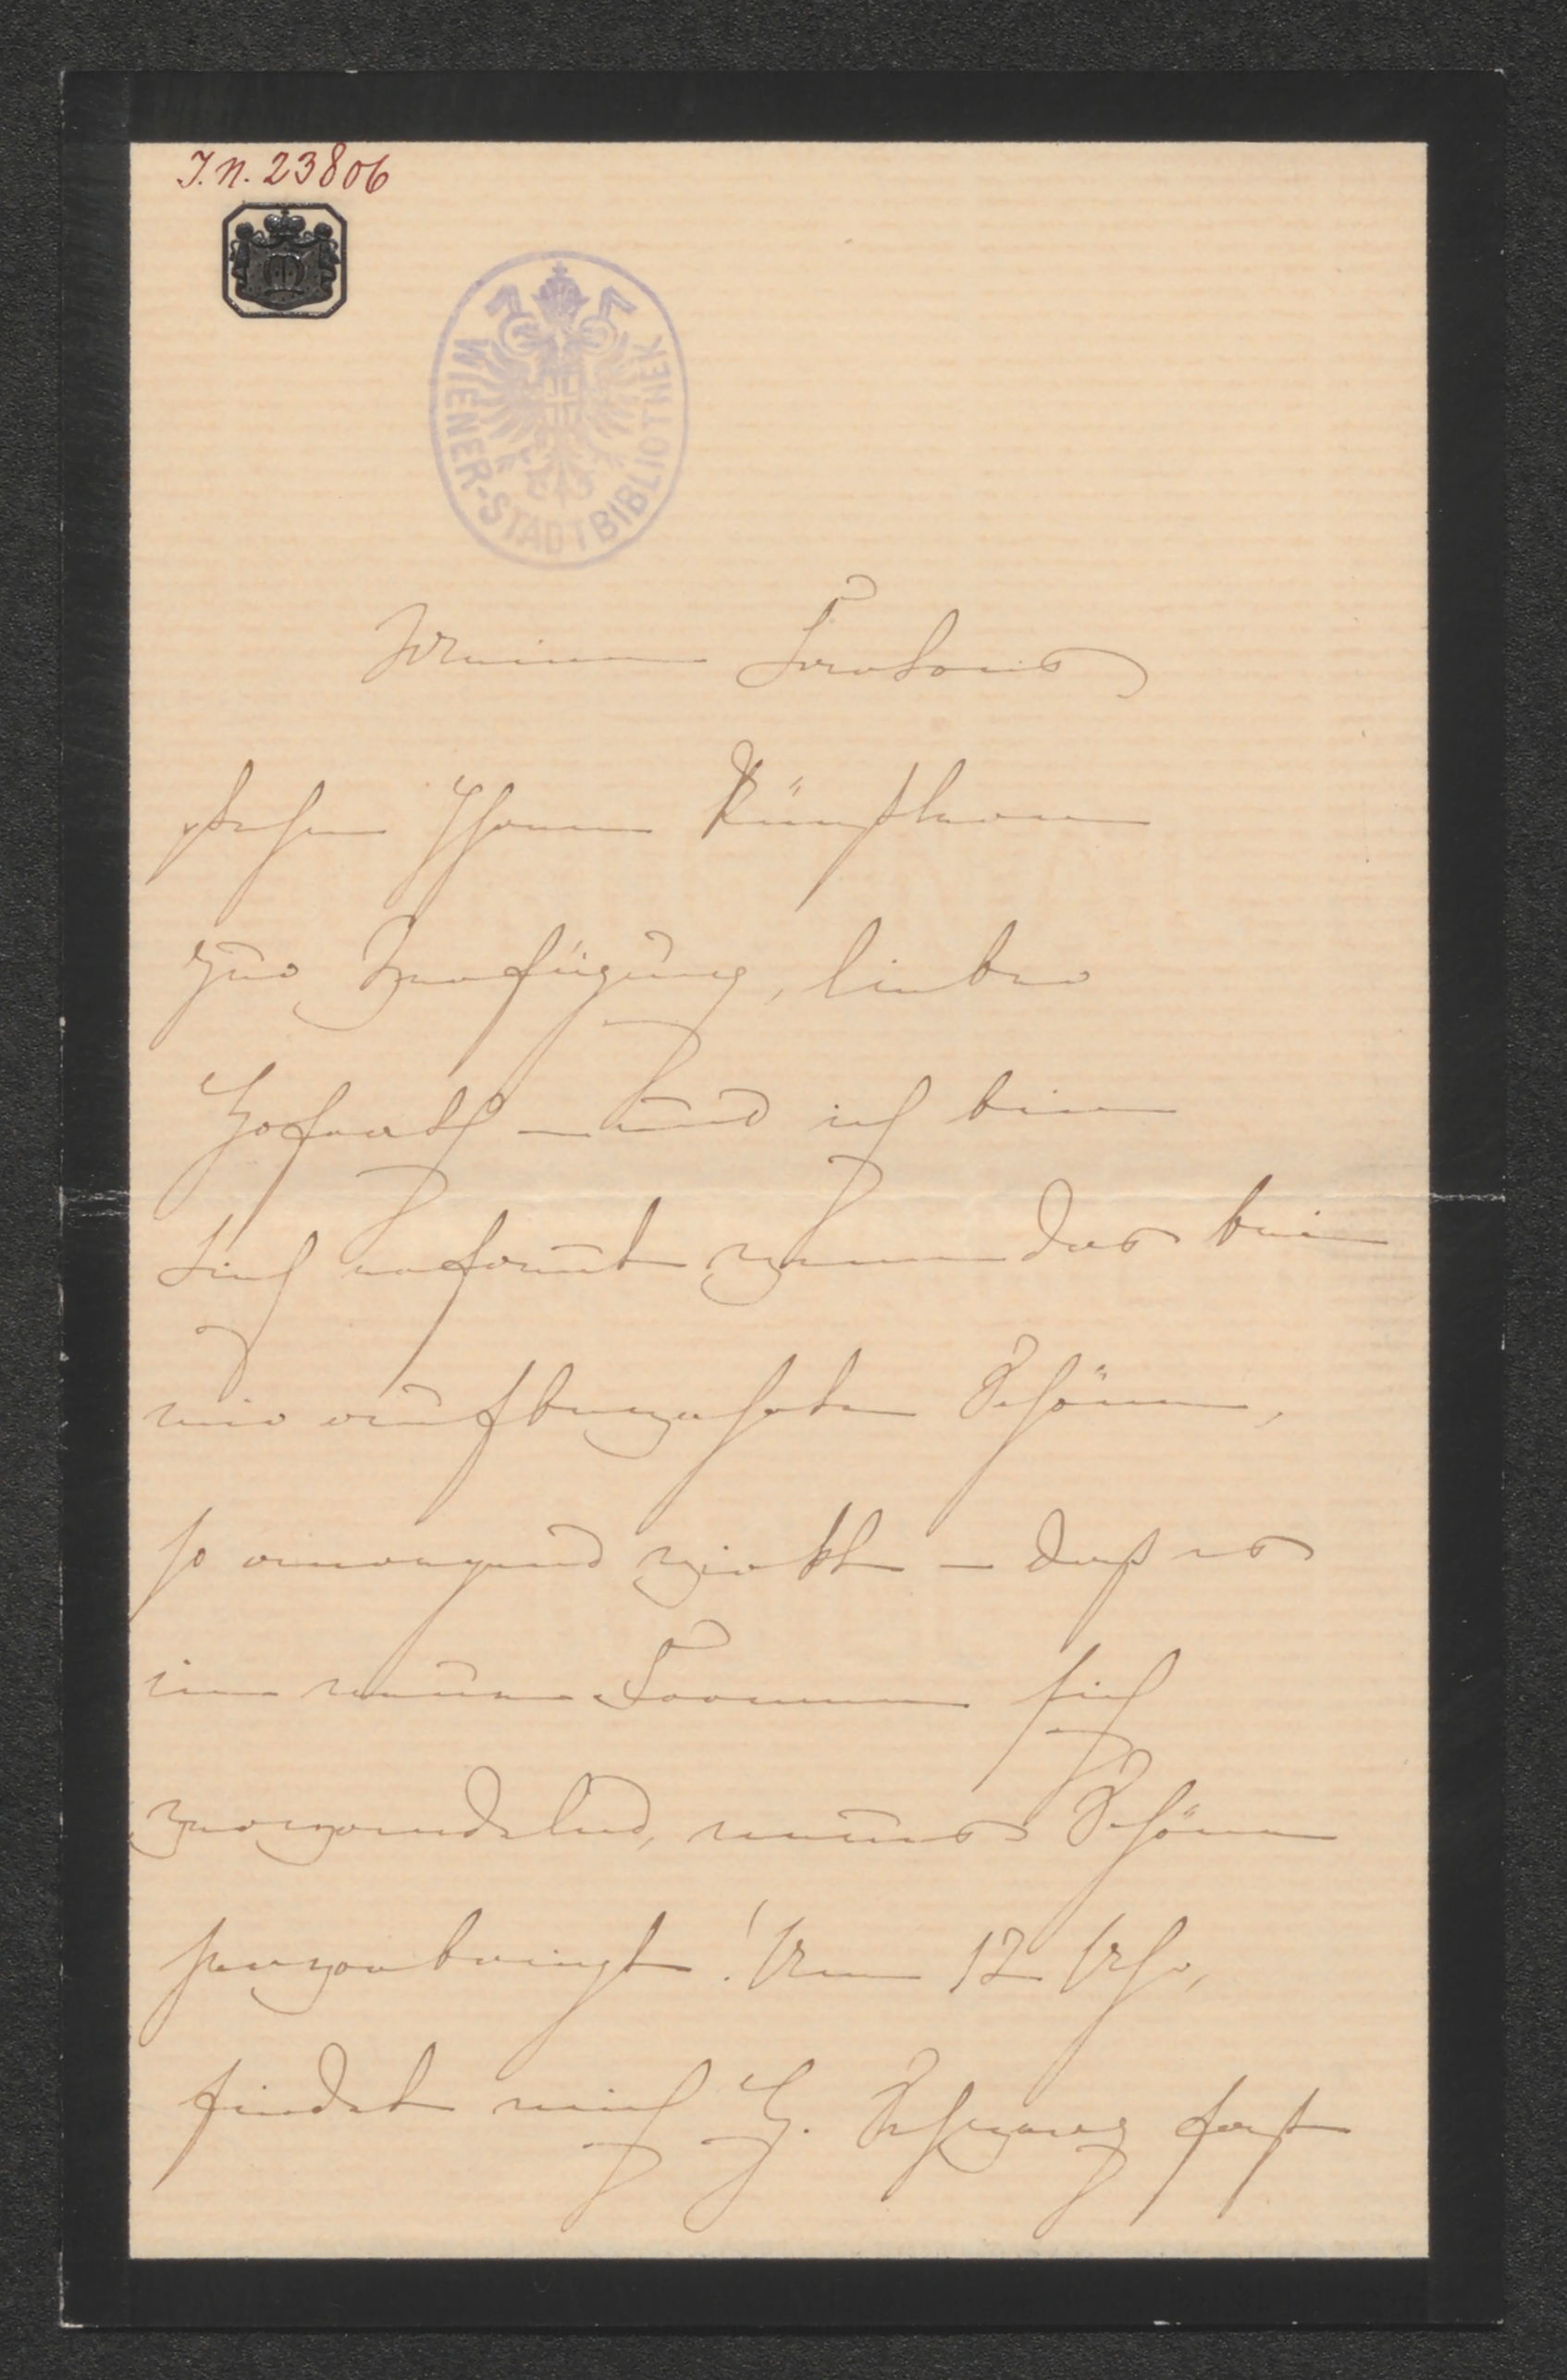 I. N. 23806
WIENER-STADTBIBLIOTHEK
Meine Trabans
stehen Ihrem Künstler
zur Verfügung, lieber
Hofrath – und ich bin
hoch erfreut wenn das bei
mir aufbewahrte Schöne,
so anregend wirkt – daß es
in neue Formen sich
verwandelnd, neues Schöne
hervorbringt! Um 12 Uhr,
findet mich H. Schwarz fast